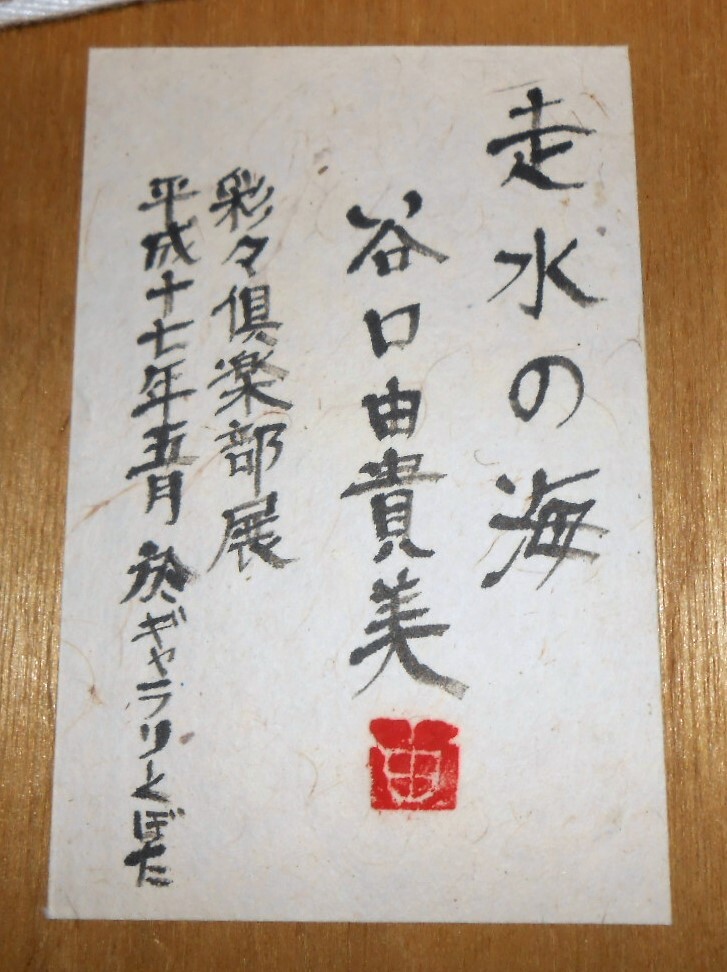 走水の海
谷口由貴美
由
彩々倶楽部展
平成十七年五月 於ギャラリとぼた